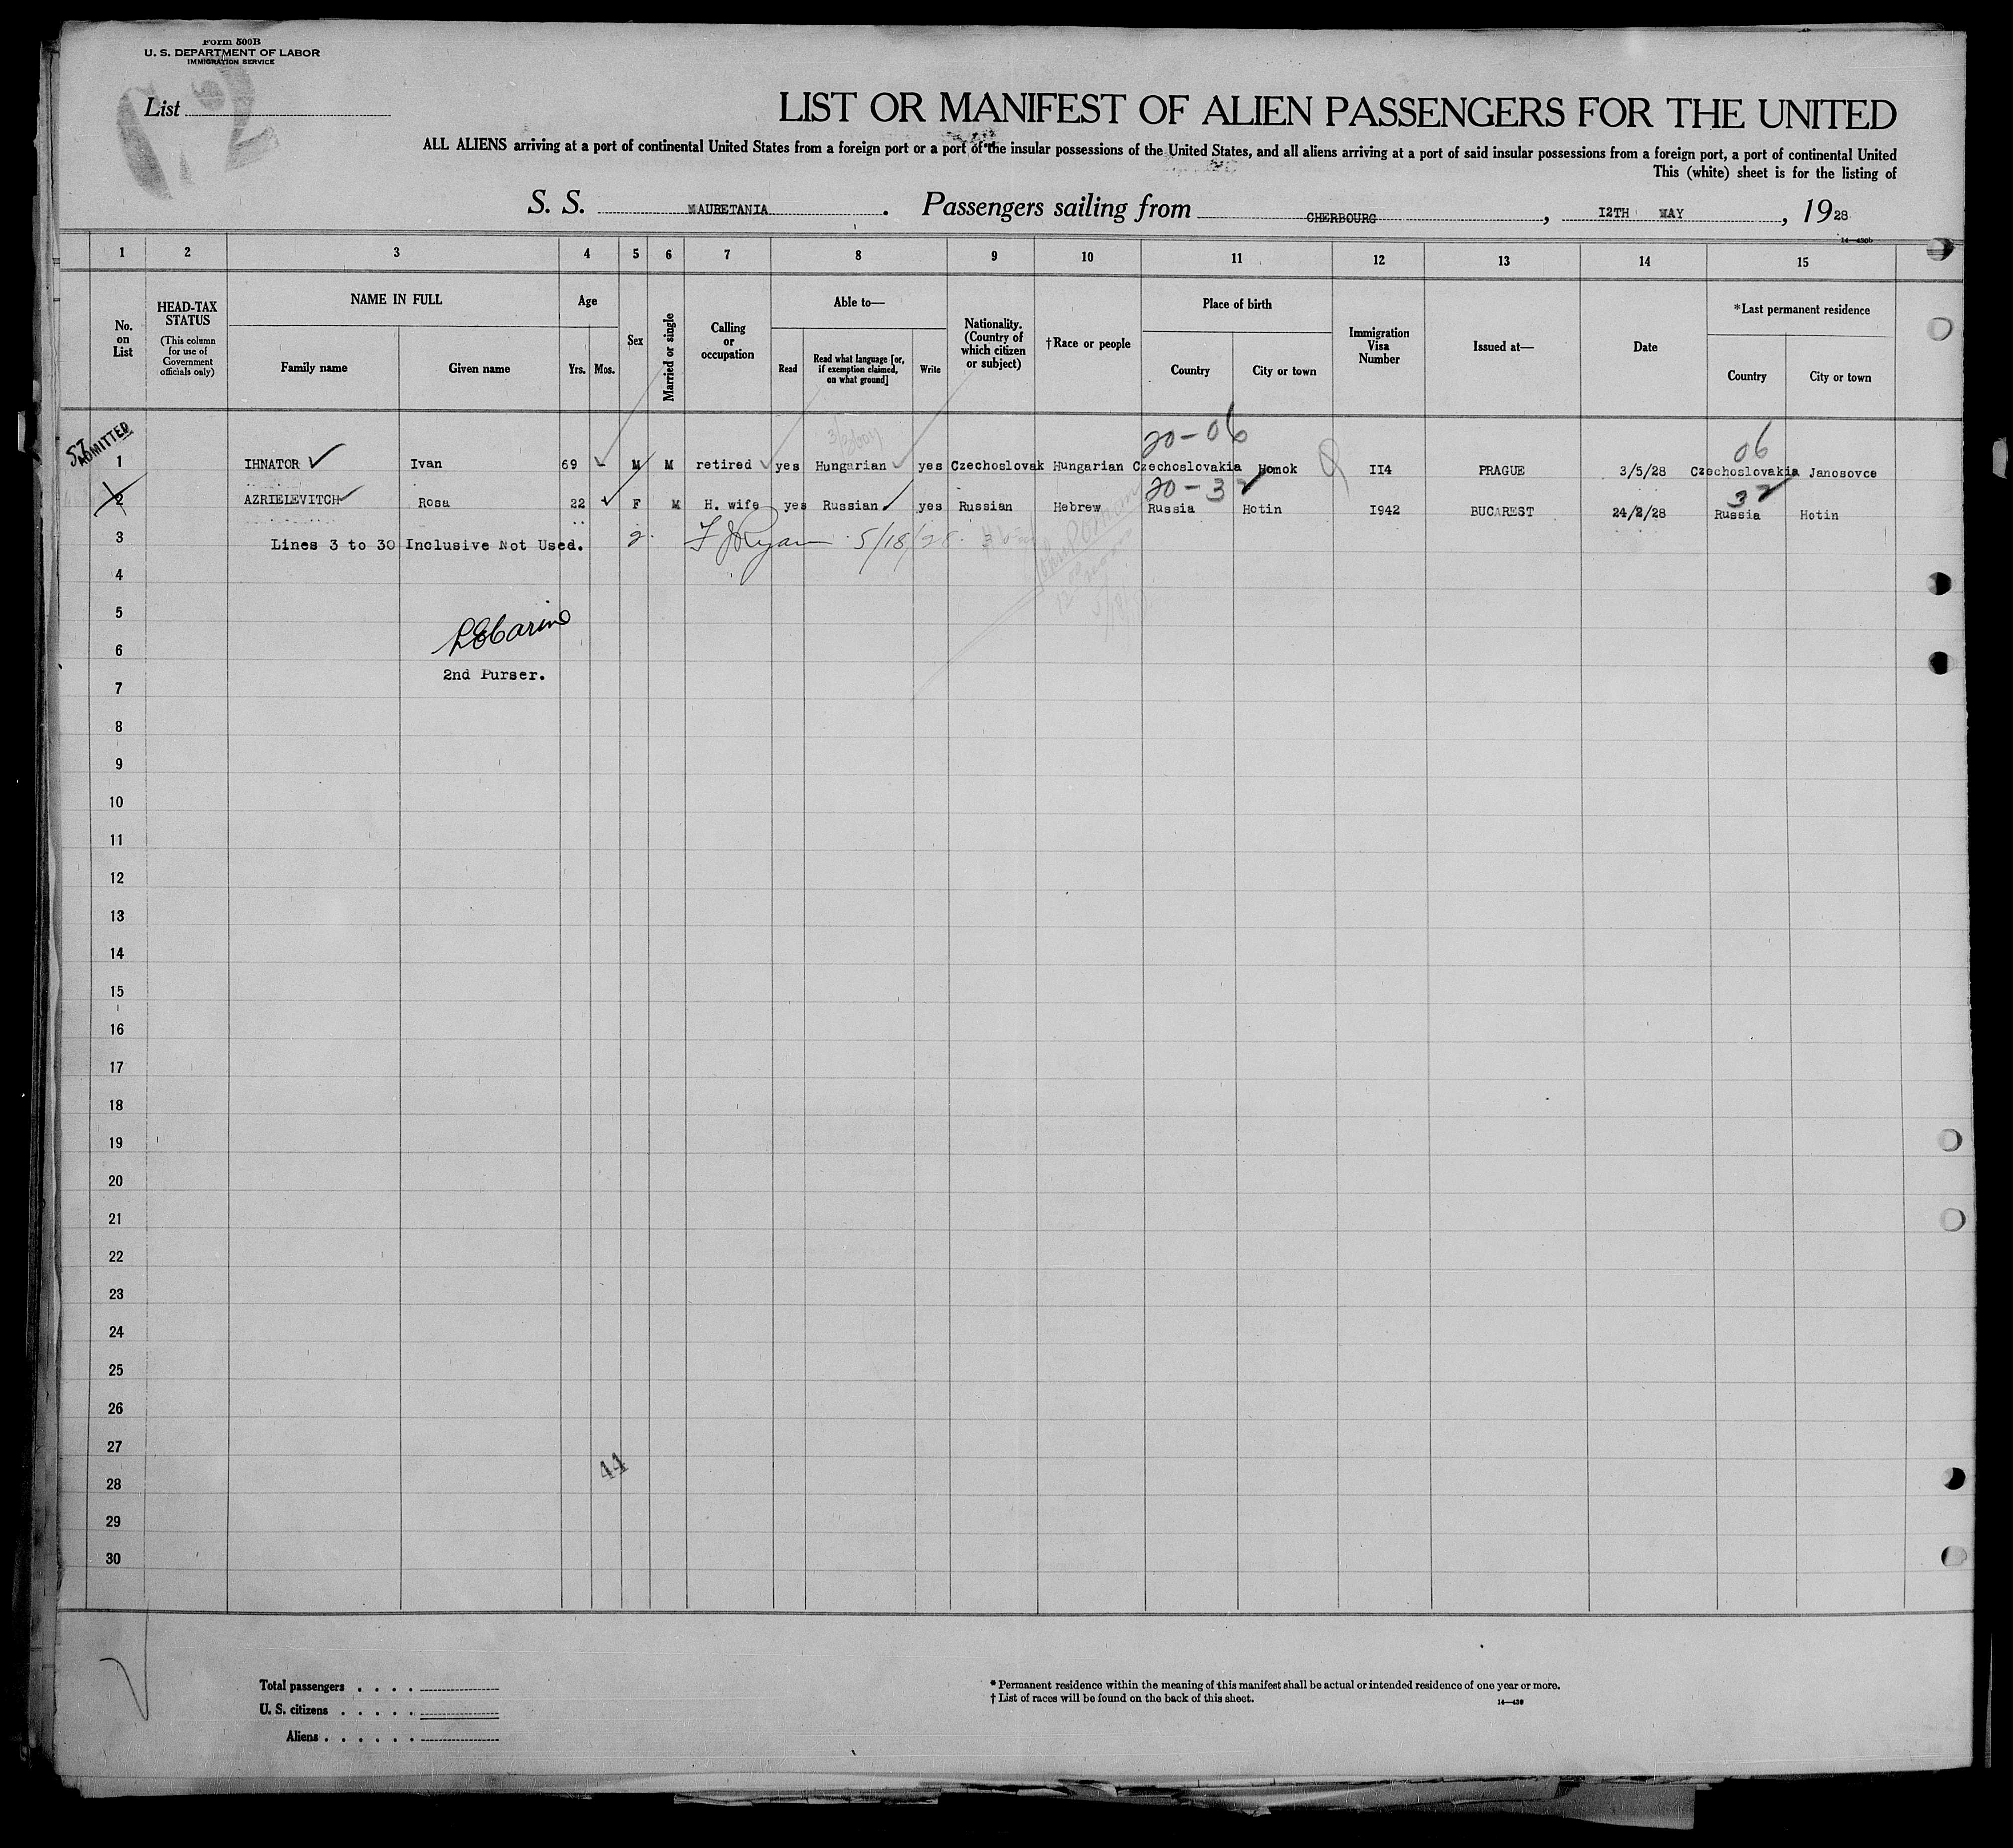 Form 500B
U. S. DEPARTMENT OF LABOR
IMMIGRATION SERVICE
List
12
LIST OR MANIFEST OF ALIEN PASSENGERS FOR THE UNITED
ALL ALIENS arriving at a port of continental United States from a foreign port or a port of the insular possessions of the United States, and all aliens arriving at a port of said insular possessions from a foreign port, a port of continental United
This (white) sheet is for the listing of
S. S. MAURETANIA. Passengers sailing from CHERBOURG, I2TH MAY, 1928
14—430b
1 2 3 4 5 6 7 8 9 10 11 12 13 14 15
No. on List
HEAD-TAX STATUS
(This column for use of Government officials only)
NAME IN FULL
Family name
Given name
Age
Yrs. Mos.
Sex
Married or single
Calling or occupation
Able to—
Read
Read what language [or, if exemption claimed, on what ground]
Write
Nationality. (Country of which citizen or subject)
†Race or people
Place of birth
Country
City or town
Immigration Visa Number
Issued at—
Date
*Last permanent residence
Country
City or town
ADMITTED
20-06 06
1 IHNATOR Ivan 69 - M M retired yes Hungarian yes Czechoslovak Hungarian Czechoslovakia Homok II4 PRAGUE 3/5/28 Czechoslovakia Janosovce
20-32 32
2 AZRIELEVITCH Rosa 22 F M H. wife yes Russian yes Russian Hebrew Russia Hotin I942 BUCAREST 24/2/28 Russia Hotin
3 Lines 3 to 30 Inclusive Not Used. 2. F J Ryan 5/18/28.
4
5
6
2nd Purser.
7
8
9
10
11
12
13
14
15
16
17
18
19
20
21
22
23
24
25
26
27
44
28
29
30
Total passengers . . . .
U. S. citizens . . . . .
Aliens . . . . . .
* Permanent residence within the meaning of this manifest shall be actual or intended residence of one year or more.
† List of races will be found on the back of this sheet. 14—430